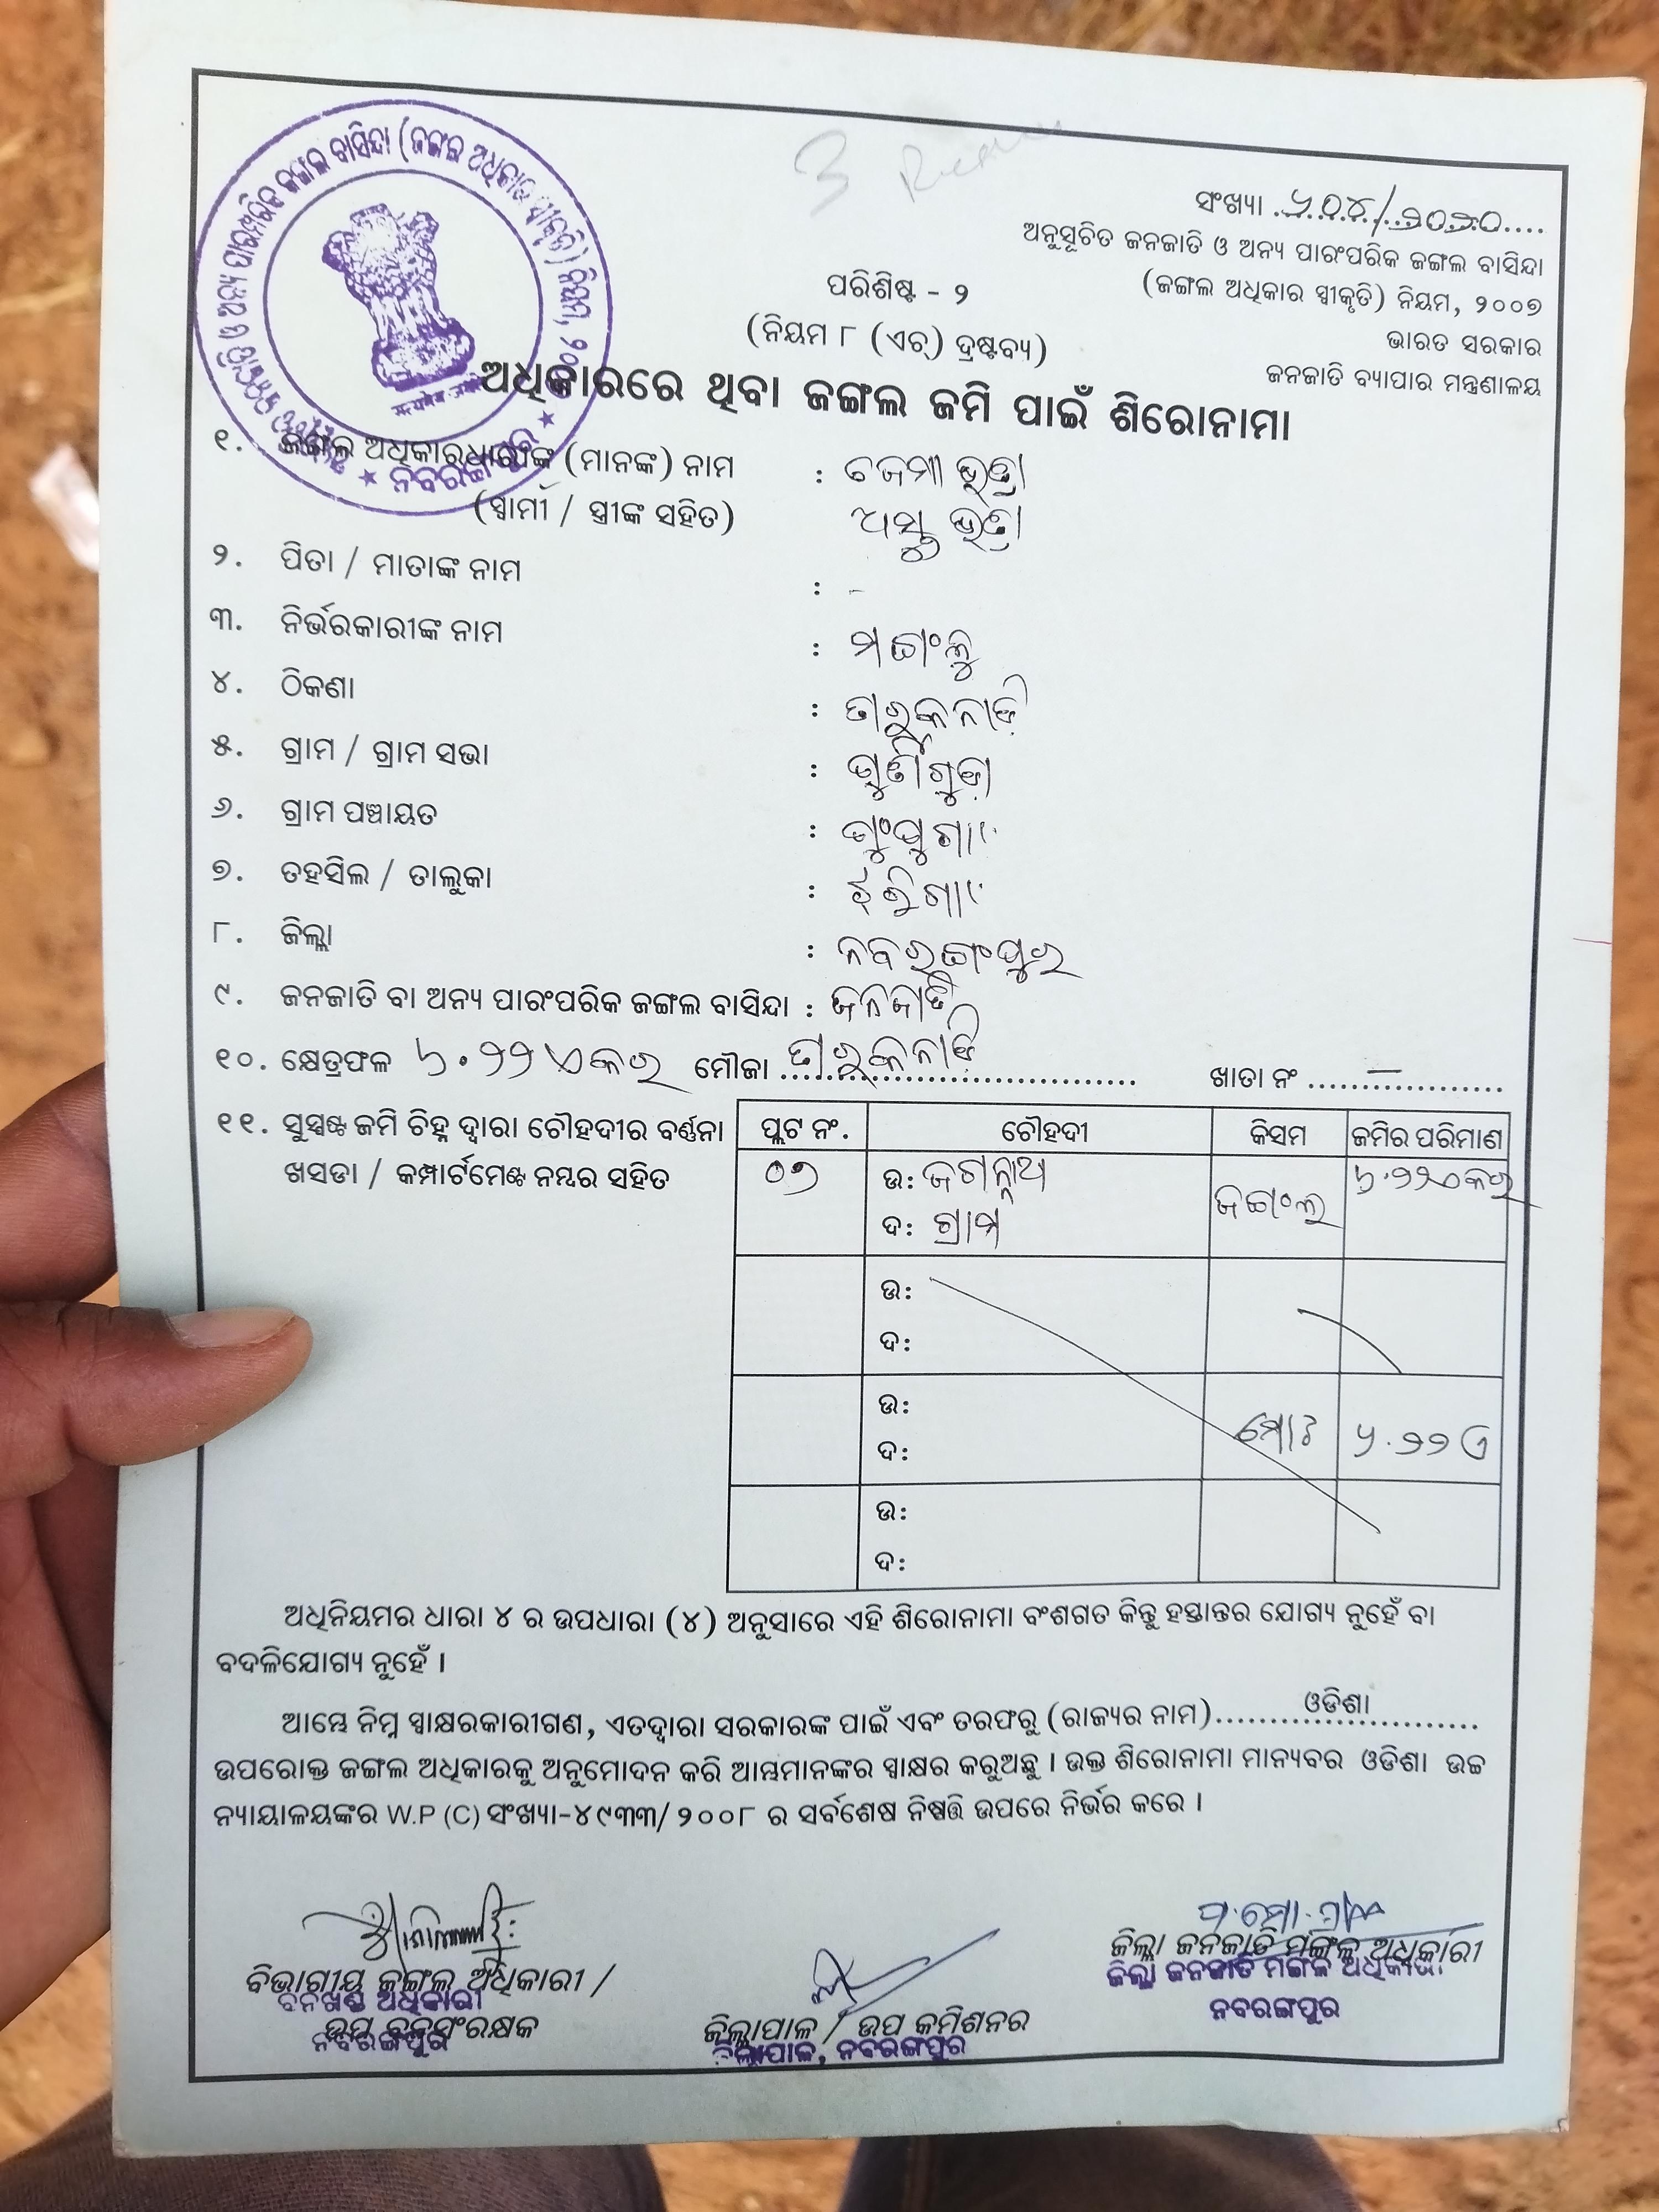 ସଂଖ୍ୟା ୨୦୪/୨୦୧୦
ଅନୁସୂଚିତ ଜନଜାତି ଓ ଅନ୍ୟ ପାରଂପରିକ ଜଙ୍ଗଲ ବାସିନ୍ଦା
(ଜଙ୍ଗଲ ଅଧିକାର ସ୍ୱୀକୃତି) ନିୟମ, ୨୦୦୭
ଭାରତ ସରକାର
ଜନଜାତି ବ୍ୟାପାର ମନ୍ତ୍ରଣାଳୟ
ପରିଶିଷ୍ଟ - ୨
(ନିୟମ ୮ (ଏଚ୍) ଦ୍ରଷ୍ଟବ୍ୟ)
ଅଧିକାରରେ ଥିବା ଜଙ୍ଗଲ ଜମି ପାଇଁ ଶିରୋନାମା
୧. ଜଙ୍ଗଲ ଅଧିକାରଧାରୀଙ୍କ (ମାନଙ୍କ) ନାମ : ଜେମା ଭତ୍ରା
(ସ୍ୱାମୀ / ସ୍ତ୍ରୀଙ୍କ ସହିତ) ଭତ୍ରା
୨. ପିତା / ମାତାଙ୍କ ନାମ : -
୩. ନିର୍ଭରକାରୀଙ୍କ ନାମ : ମଙ୍ଗଳୁ
୪. ଠିକଣା :
୫. ଗ୍ରାମ / ଗ୍ରାମ ସଭା :
୬. ଗ୍ରାମ ପଞ୍ଚାୟତ :
୭. ତହସିଲ / ତାଲୁକା : ଝରିଗାଁ
୮. ଜିଲ୍ଲା : ନବରଙ୍ଗପୁର
୯. ଜନଜାତି ବା ଅନ୍ୟ ପାରଂପରିକ ଜଙ୍ଗଲ ବାସିନ୍ଦା : ଜନଜାତି
୧୦. କ୍ଷେତ୍ରଫଳ ୫.୨୨ ଏକର ମୌଜା ଖାତା ନଂ —
୧୧. ସୁସ୍ପଷ୍ଟ ଜମି ଚିହ୍ନ ଦ୍ୱାରା ଚୌହଦୀର ବର୍ଣ୍ଣନା
ଖସଡା / କମ୍ପାର୍ଟମେଣ୍ଟ ନମ୍ବର ସହିତ
ପ୍ଲଟ ନଂ. ଚୌହଦୀ କିସମ ଜମିର ପରିମାଣ
୦୭ ଉ: ଜଗନ୍ନାଥ ଜଙ୍ଗଲ ୫.୨୨ଏକର
ଦ: ଗ୍ରାମ
ଉ:
ଦ:
ଉ: ମୋଃ ୫.୨୨ ଏ
ଦ:
ଉ:
ଦ:
ଅଧିନିୟମର ଧାରା ୪ ର ଉପଧାରା (୪) ଅନୁସାରେ ଏହି ଶିରୋନାମା ବଂଶଗତ କିନ୍ତୁ ହସ୍ତାନ୍ତର ଯୋଗ୍ୟ ନୁହେଁ ବା
ବଦଳିଯୋଗ୍ୟ ନୁହେଁ ।
ଆମ୍ଭେ ନିମ୍ନ ସ୍ୱାକ୍ଷରକାରୀଗଣ, ଏତଦ୍ୱାରା ସରକାରଙ୍କ ପାଇଁ ଏବଂ ତରଫରୁ (ରାଜ୍ୟର ନାମ) ଓଡିଶା
ଉପରୋକ୍ତ ଜଙ୍ଗଲ ଅଧିକାରକୁ ଅନୁମୋଦନ କରି ଆମ୍ଭମାନଙ୍କର ସ୍ୱାକ୍ଷର କରୁଅଛୁ । ଉକ୍ତ ଶିରୋନାମା ମାନ୍ୟବର ଓଡିଶା ଉଚ୍ଚ
ନ୍ୟାୟାଳୟଙ୍କର W.P (C) ସଂଖ୍ୟା-୪୯୩୩/୨୦୦୮ ର ସର୍ବଶେଷ ନିଷ୍ପତ୍ତି ଉପରେ ନିର୍ଭର କରେ ।
ବିଭାଗୀୟ ଜଙ୍ଗଲ ଅଧିକାରୀ /
ବନଖଣ୍ଡ ଅଧିକାରୀ
ଉପ ବନସଂରକ୍ଷକ
ନବରଙ୍ଗପୁର
ଜିଲ୍ଲାପାଳ / ଉପ କମିଶନର
ଜିଲ୍ଲାପାଳ, ନବରଙ୍ଗପୁର
ଜିଲ୍ଲା ଜନଜାତି ମଙ୍ଗଳ ଅଧିକାରୀ
ଜିଲ୍ଲା ଜନଜାତି ମଙ୍ଗଳ ଅଧିକାରୀ
ନବରଙ୍ଗପୁର